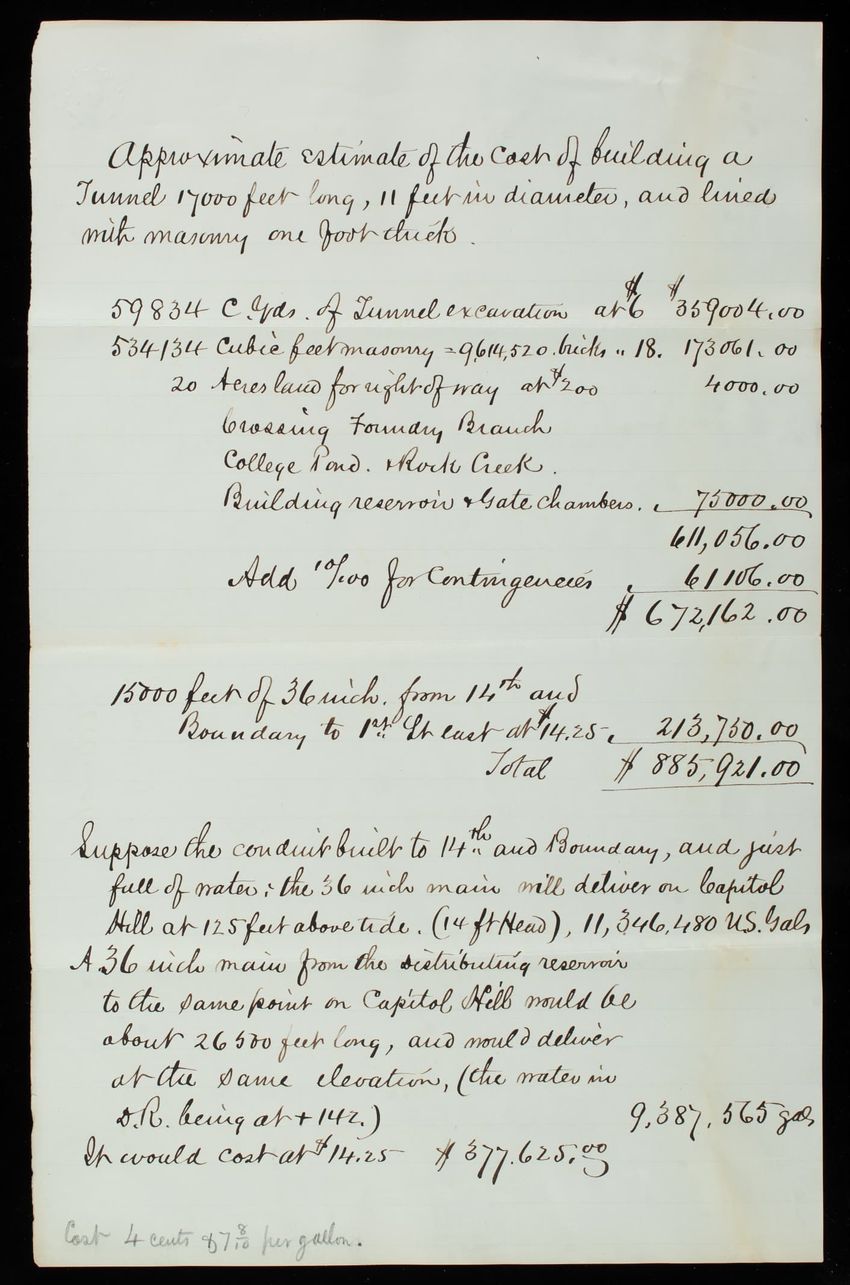 Approximate estimate of the Cost of building a
Tunnel 17000 feet long, 11 feet in diameter, and lined
with masonry one foot thick.
59834 C. Yds. of Tunnel excavation at $6 $359004.00
534134 Cubic feet masonry = 9,614,520. bricks " 18. 173061.00
20 Acres land for right of way at $200 4000.00
Crossing Foundry Branch
College Pond. & Rock Creek.
Building reservoir & Gate chambers. 75000.00
611,056.00
Add 10/100 for Contingencies 61106.00
$ 672,162.00
15000 feet of 36 inch. from 14th and
Boundary to 1st St east at $14.25 213,750.00
Total $ 885,921.00
Suppose the conduit built to 14th and Boundary, and just
full of water; the 36 inch main will deliver on Capitol
Hill at 125 feet above tide. (14 ft Head), 11,346,480 U.S. Gals
A 36 inch main from the distributing reservoir
to the same point on Capitol Hill would be
about 26500 feet long, and would deliver
at the same elevation, (the water in
D.R. being at + 142.) 9,387,565 gals
It would cost at $14.25 $ 377.625.00
Cost 4 cents & 7 8/10 per gallon.